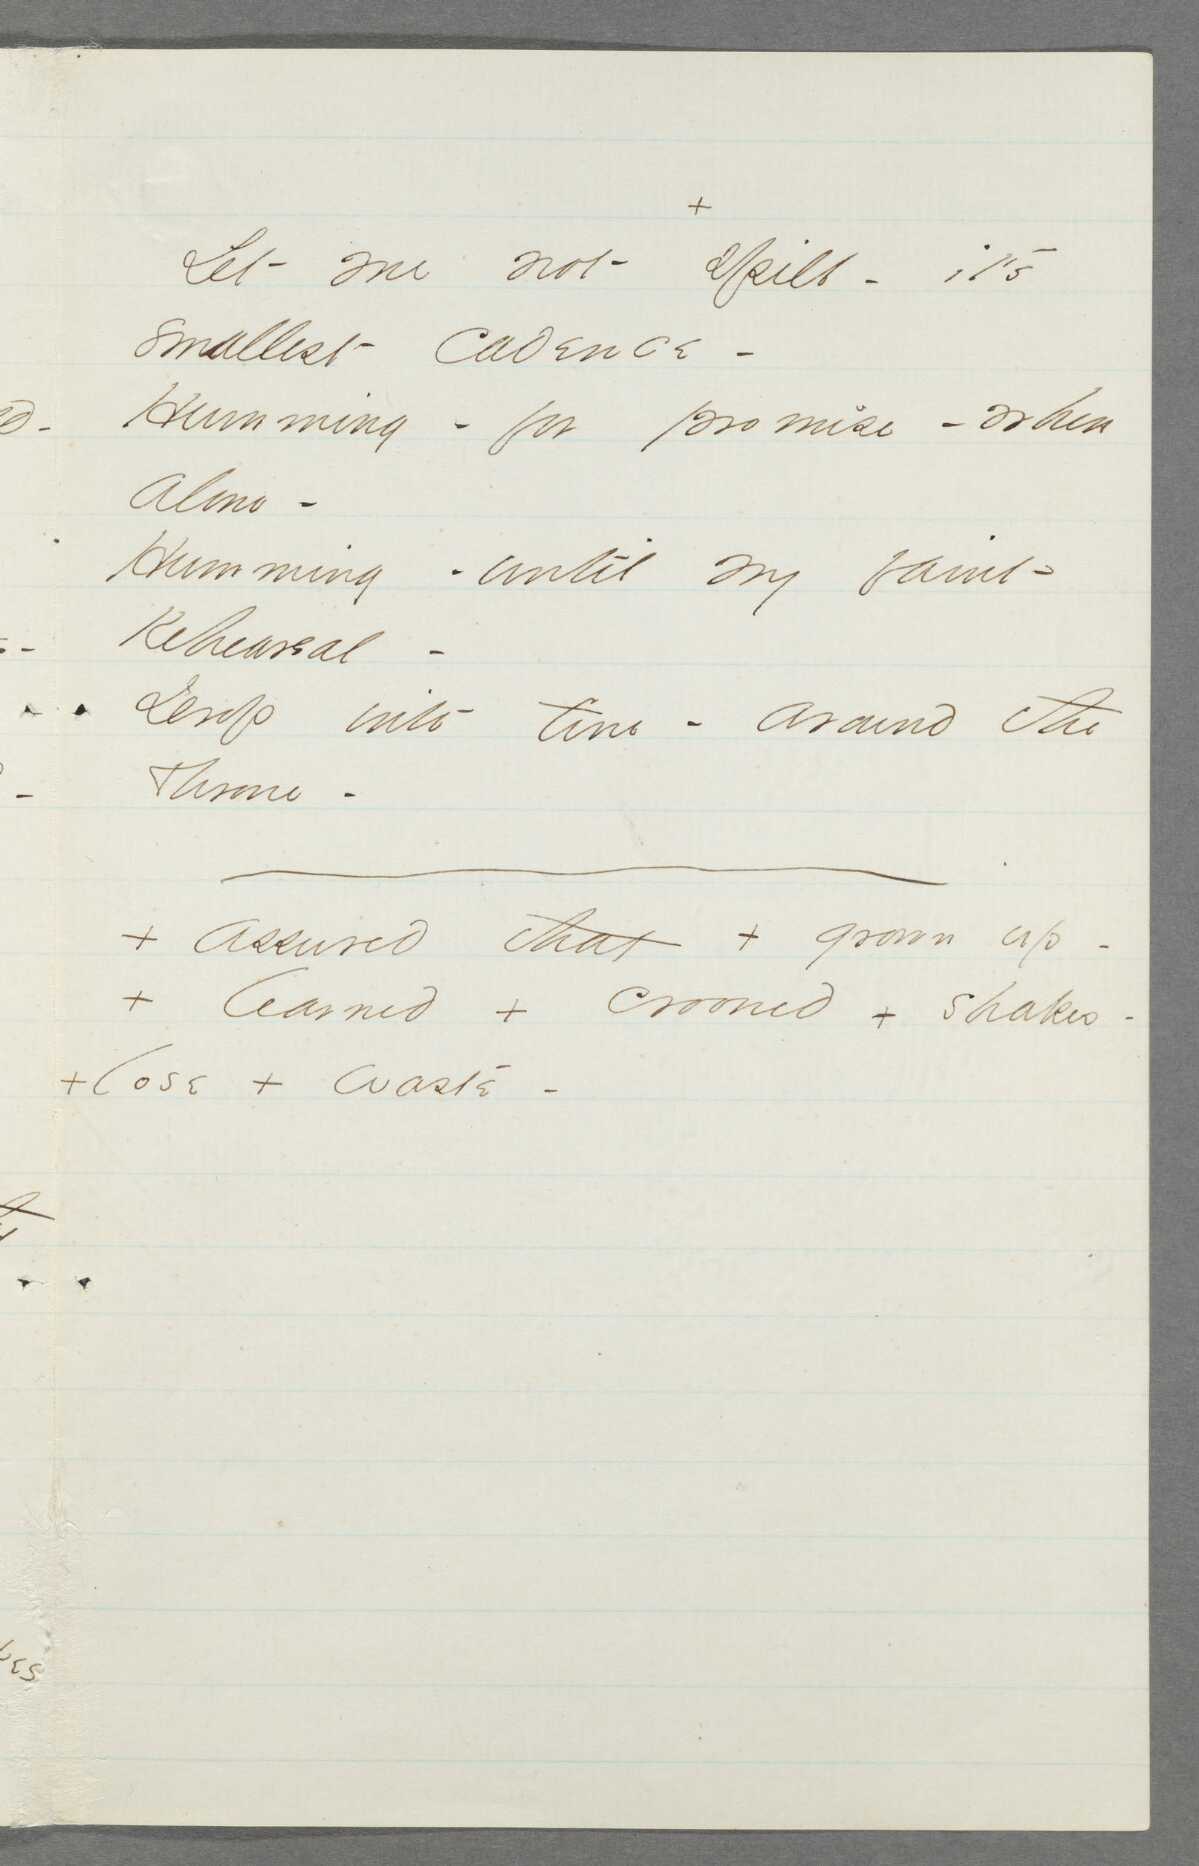 +
Let me not spill - it's
smallest cadence -
Humming - for promise - when
alone -
Humming - until my faint
Rehearsal -
Drop into tune - around the
Throne -
+ assured that + grown up -
+ learned + crooned + shakes -
+ lose + waste -